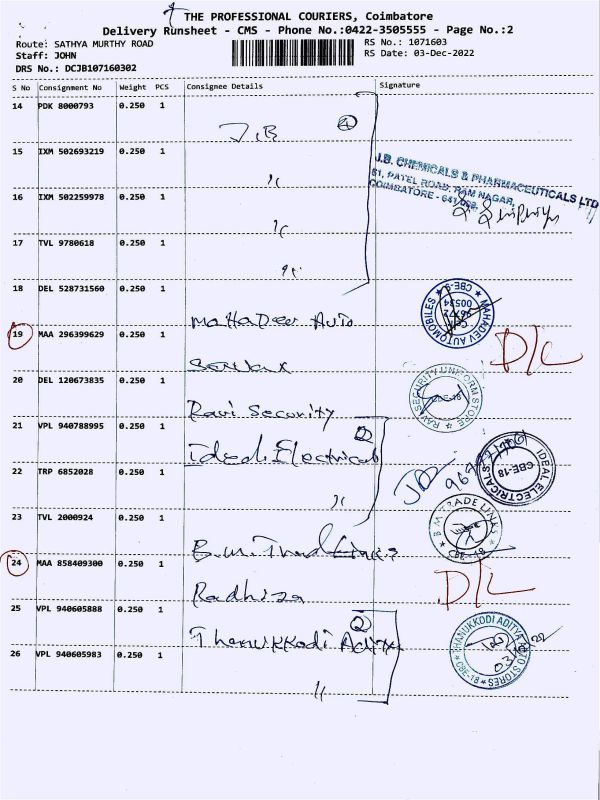 THE PROFESSIONAL COURIERS, Coimbatore
Delivery Runsheet - CMS - Phone No.:0422-3505555 - Page No.:2
Route: SATHYA MURTHY ROAD
RS No.: 1071603
Staff: JOHN
RS Date: 03-Dec-2022
DRS No.: DCJB107160302
S No Consignment No Weight PCS Consignee Details Signature
14 PDK 8000793 0.250 1 J.B 4
15 IXM 502693219 0.250 1 "
J.B. CHEMICALS & PHARMACEUTICALS LTD
61, PATEL ROAD, RAM NAGAR,
COIMBATORE - 641 009.
16 IXM 502259978 0.250 1 "
17 TVL 9780618 0.250 1 "
18 DEL 528731560 0.250 1 Mahadev Auto
MAHADEV AUTOMOBILES CBE-9
19 MAA 296399629 0.250 1
D/L
20 DEL 120673835 0.250 1 Ravi Security
RAVI SECURITY UNIFORM STORE CBE-18
21 VPL 940788995 0.250 1 Ideal Electricals 2
IDEAL ELECTRICALS CBE-18
22 TRP 6852028 0.250 1 "
23 TVL 2000924 0.250 1 B.M. Trade Links
B M TRADE LINKS CBE-18
24 MAA 858409300 0.250 1
D/L
25 VPL 940605888 0.250 1 Thanukkodi Aditya 2
THANUKKODI ADITYA AUTO STORES CBE-18
26 VPL 940605983 0.250 1 "